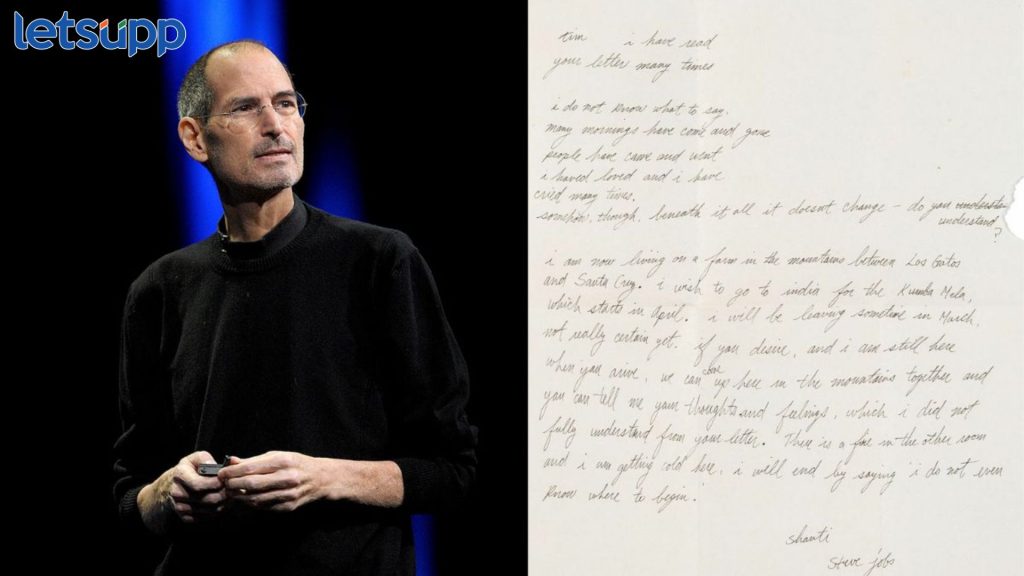 letsupp
tim i have read
your letter many times
i do not know what to say.
many mornings have come and gone
people have came and went
i haved loved and i have
cried many times.
somehow, though, beneath it all it doesn't change – do you understa
understand?
i am now living on a farm in the mountains between Los Gatos
and Santa Cruz. i wish to go to india for the Kumba Mela,
which starts in April. i will be leaving sometime in March,
not really certain yet. if you desire, and i am still here
when you arive, we can
come
up here in the mountains together and
you can tell me your thoughts and feelings, which i did not
fully understand from your letter. There is a fire in the other room
and i am getting cold here. i will end by saying 'i do not even
know where to begin.'
shanti
steve jobs